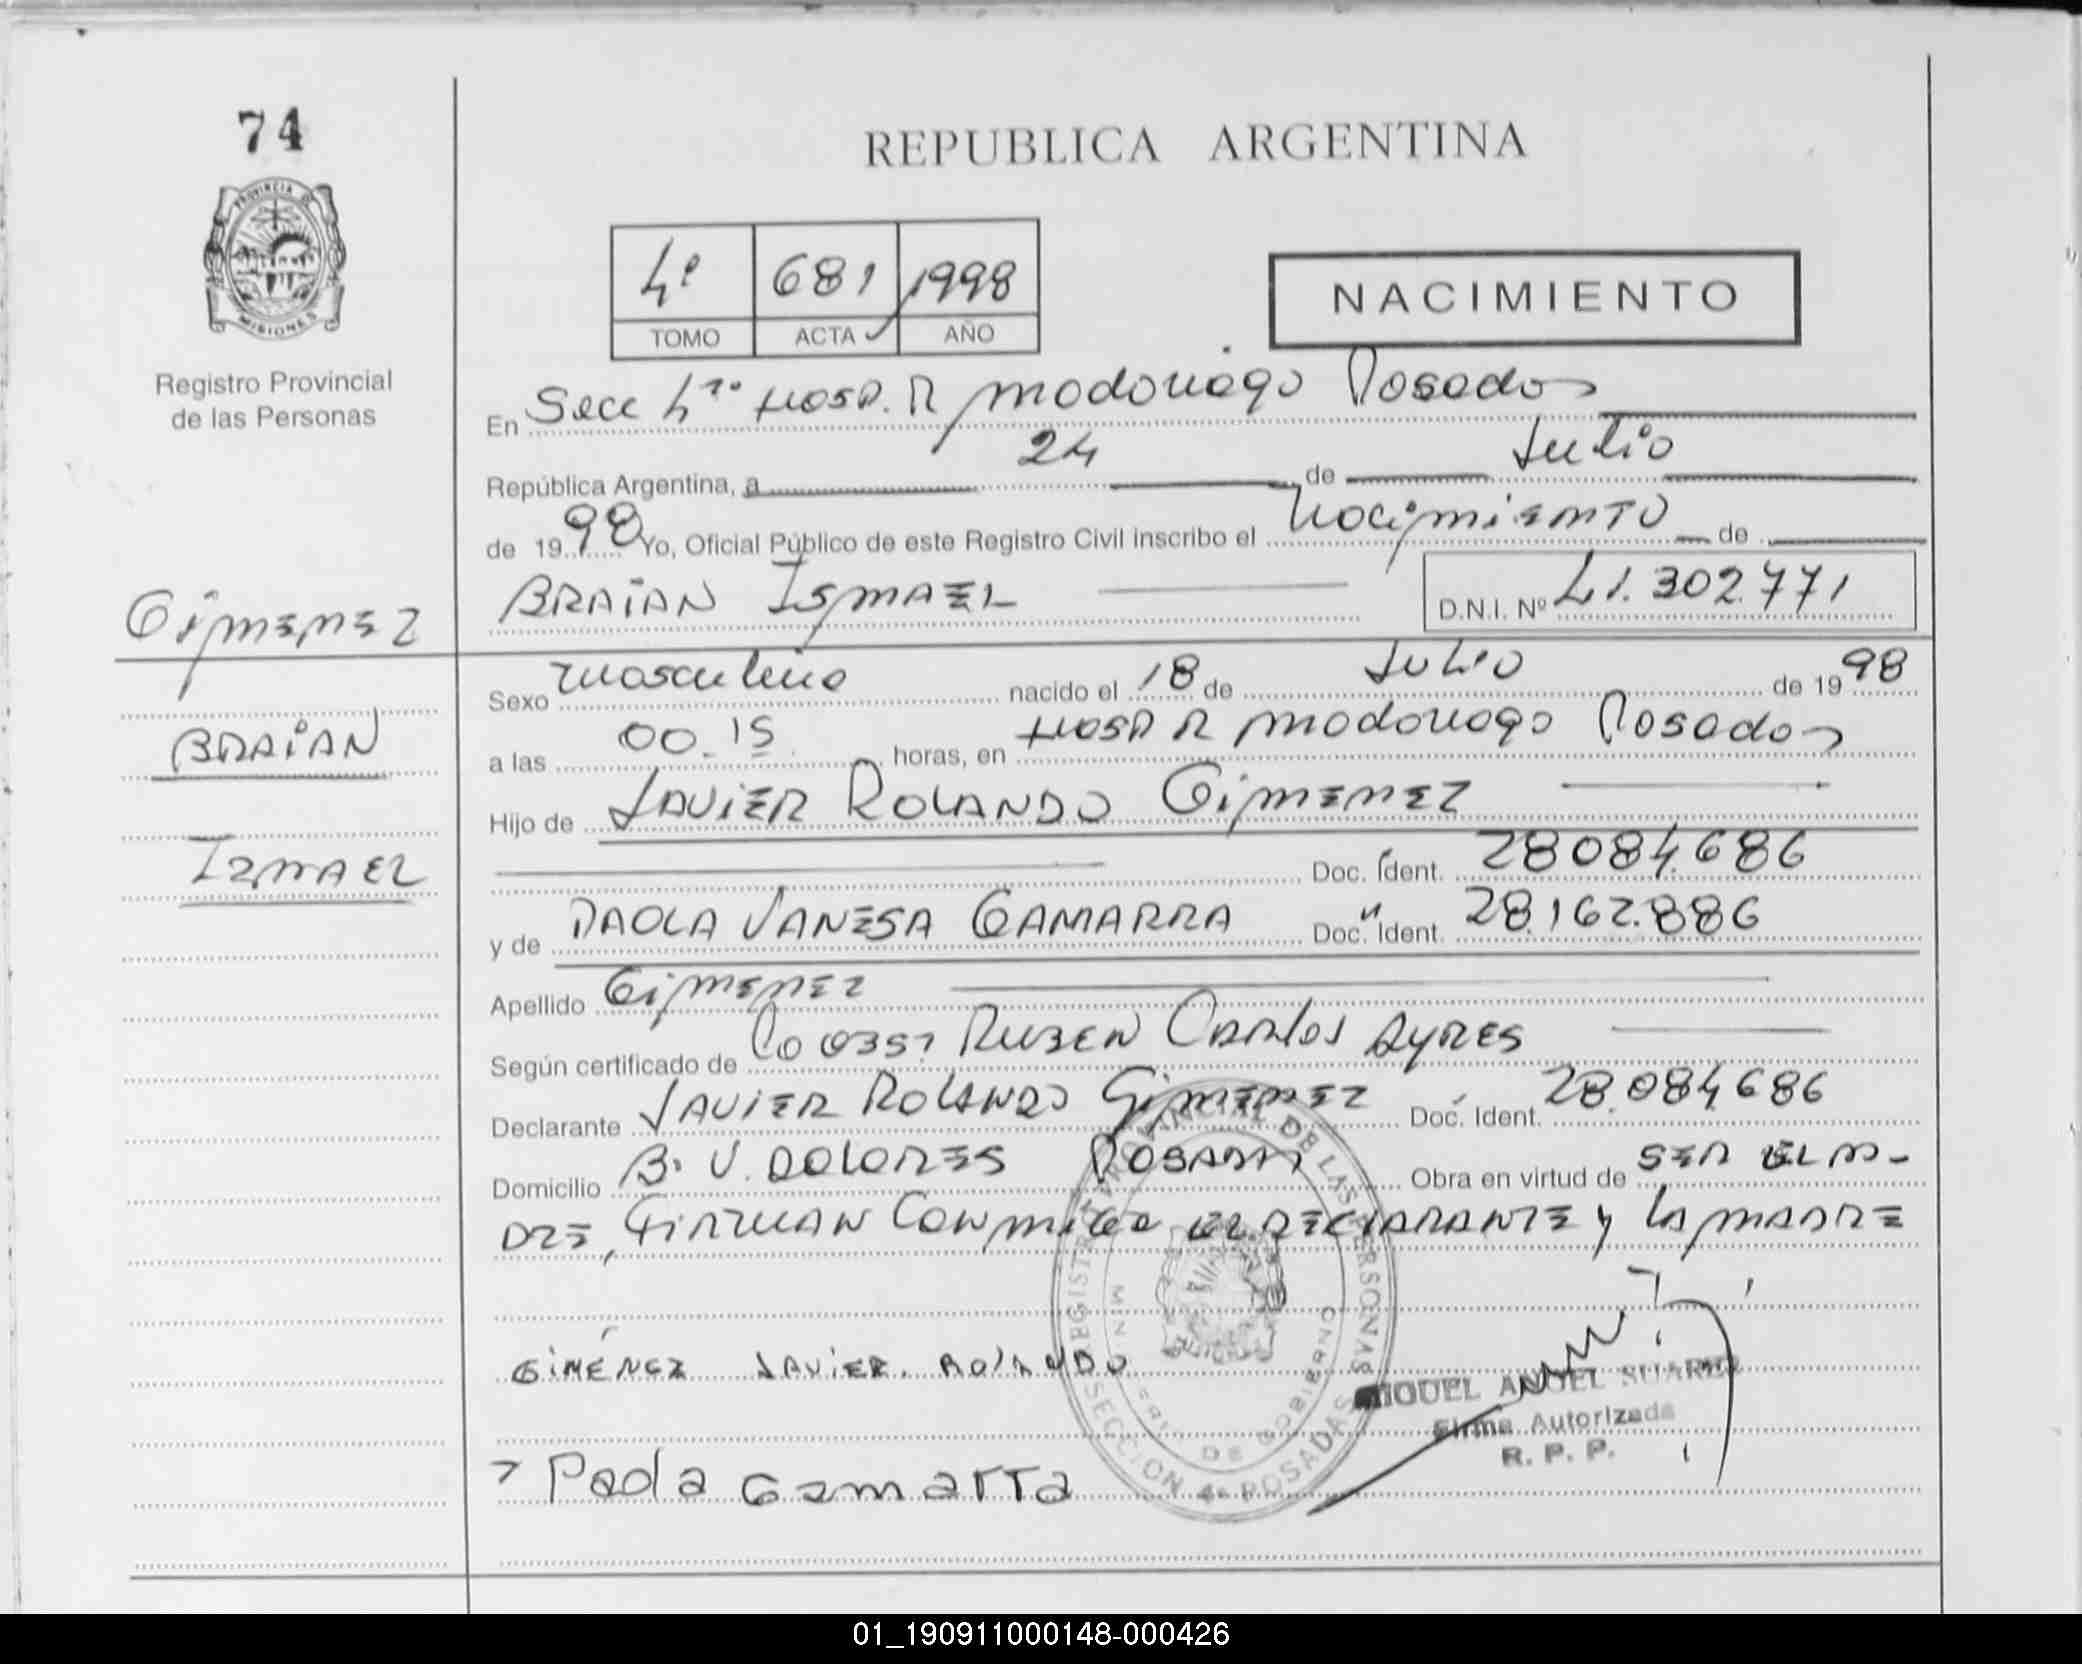 74
PROVINCIA DE
MISIONES
Registro Provincial
de las Personas
REPUBLICA ARGENTINA
4º 681 1998
TOMO ACTA AÑO
NACIMIENTO
En Secc 4ta Hosp. R Madariaga Posadas
República Argentina, a 24 de Julio
de 1998 Yo, Oficial Público de este Registro Civil inscribo el Nacimiento de
BRAIAN ISMAEL D.N.I. Nº 41.302.771
Gimenez
BRAIAN
ISMAEL
Sexo masculino nacido el 18 de Julio de 1998
a las 00.15 horas, en Hosp R Madariaga Posadas
Hijo de JAVIER ROLANDO GIMENEZ
Doc. Ident. 28084.686
y de PAOLA VANESA GAMARRA Doc. Ident. 28.162.886
Apellido Gimenez
Según certificado de RUBEN CARLOS AYRES
Declarante JAVIER ROLANDO GIMENEZ Doc. Ident. 28.084.686
Domicilio B. V. DOLORES POSADAS Obra en virtud de SER EL PA-
DRE, FIRMAN CONMIGO EL DECLARANTE Y LA MADRE
GIMÉNEZ JAVIER ROLANDO
Paola Gamarra
REGISTRO PROVINCIAL DE LAS PERSONAS
SECCION 4a POSADAS
DE GOBIERNO
MIGUEL ANGEL SUAREZ
Firma Autorizada
R. P. P.
01_190911000148-000426